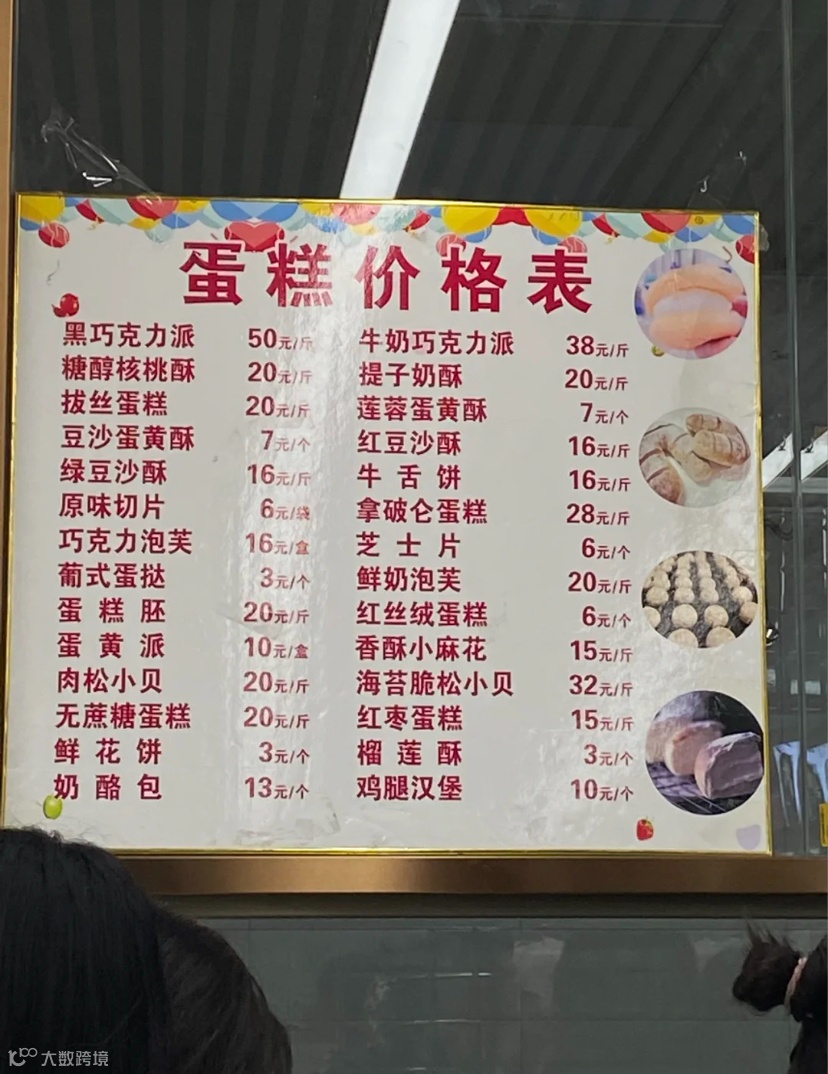 蛋糕价格表
黑巧克力派 50元/斤 牛奶巧克力派 38元/斤
糖醇核桃酥 20元/斤 提子奶酥 20元/斤
拔丝蛋糕 20元/斤 莲蓉蛋黄酥 7元/个
豆沙蛋黄酥 7元/个 红豆沙酥 16元/斤
绿豆沙酥 16元/斤 牛舌饼 16元/斤
原味切片 6元/袋 拿破仑蛋糕 28元/斤
巧克力泡芙 16元/盒 芝士片 6元/个
葡式蛋挞 3元/个 鲜奶泡芙 20元/斤
蛋糕胚 20元/斤 红丝绒蛋糕 6元/个
蛋黄派 10元/盒 香酥小麻花 15元/斤
肉松小贝 20元/斤 海苔脆松小贝 32元/斤
无蔗糖蛋糕 20元/斤 红枣蛋糕 15元/斤
鲜花饼 3元/个 榴莲酥 3元/个
奶酪包 13元/个 鸡腿汉堡 10元/个
大数跨境